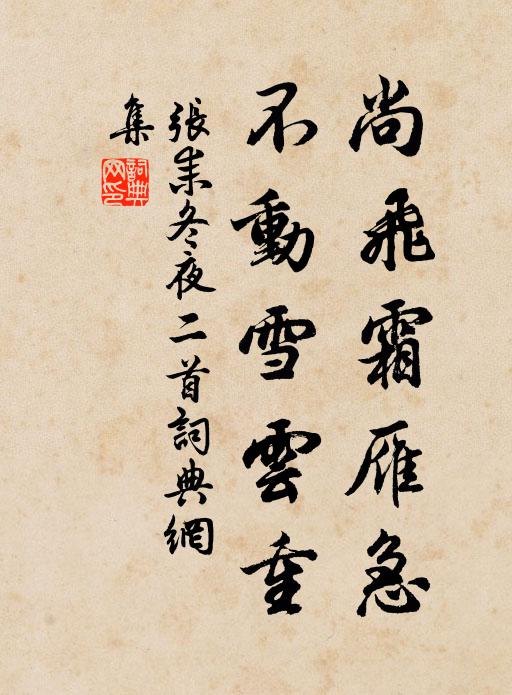 尚飛霜雁急
不動雪雲重
張耒冬夜二首詞典網
集
詞典網印